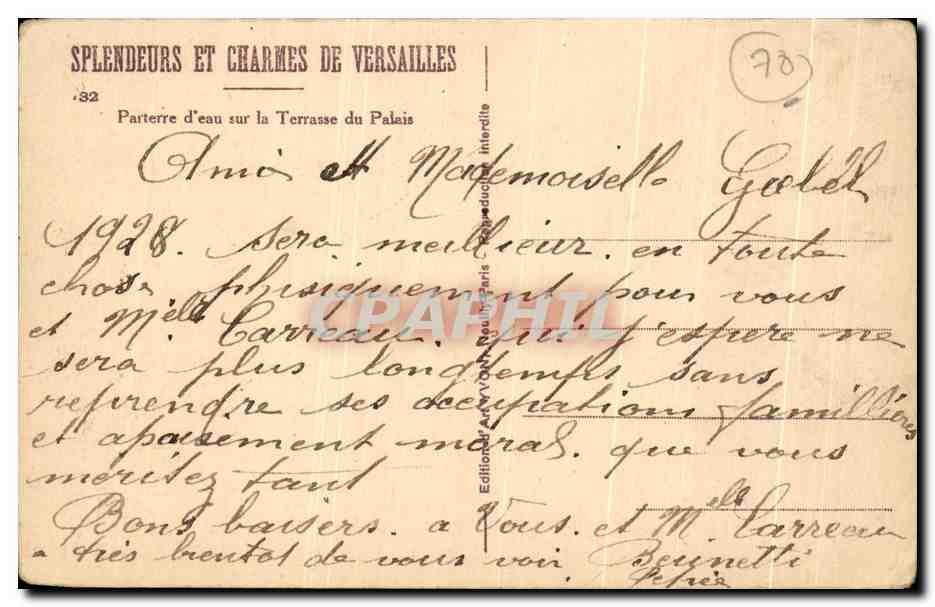 SPLENDEURS ET CHARMES DE VERSAILLES
32
Parterre d'eau sur la Terrasse du Palais
78
Editions d'Art YVON, Neuilly-Paris - Reproduction interdite
CPAPHIL
Ami et Mademoiselle
1928. sera meillieur. en toute
chose phisiquement pour vous
et Melle Carreau. qui j'espere ne
sera plus longtemps sans
reprendre ses occupations famillières
et apaisement moral. que vous
meritez tant
Bons baisers. a Vous. et Melle Carreau
a très bientot de vous voir Brunetti